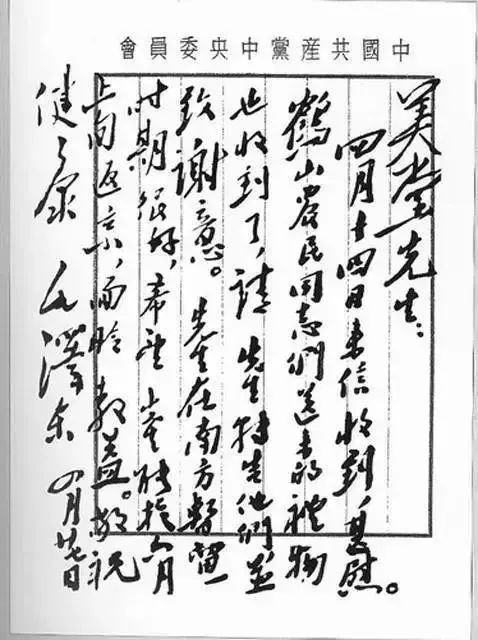 中國共産黨中央委員會
美堂先生：
四月十四日来信收到，甚慰。
鶴山農民同志們送来的禮物
也收到了，請 先生轉告他們並
致謝意。先生在南方暫留
时期很好，希望 能於六月
上旬返京，面聆教益。敬祝
健康 毛澤东 四月廿七日